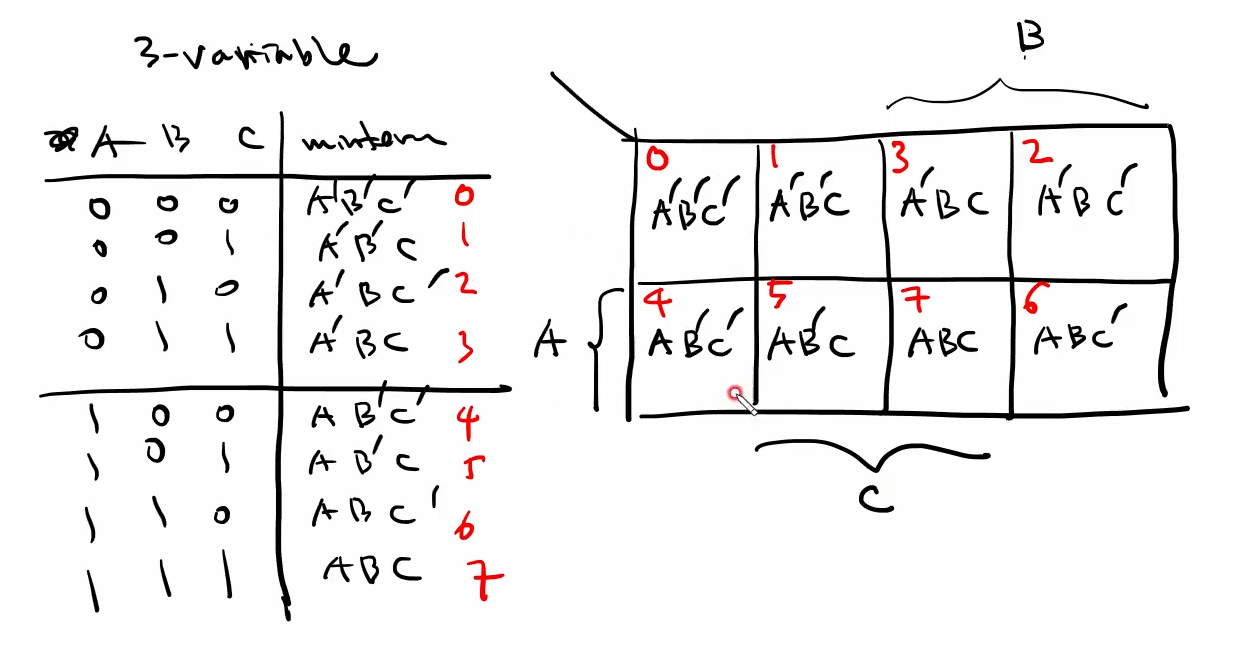 3-variable
A B C minterm
0 0 0 A'B'C' 0
0 0 1 A'B'C 1
0 1 0 A'BC' 2
0 1 1 A'BC 3
1 0 0 AB'C' 4
1 0 1 AB'C 5
1 1 0 ABC' 6
1 1 1 ABC 7
B
0 1 3 2
A'B'C' A'B'C A'BC A'BC'
4 5 7 6
A AB'C' AB'C ABC ABC'
C